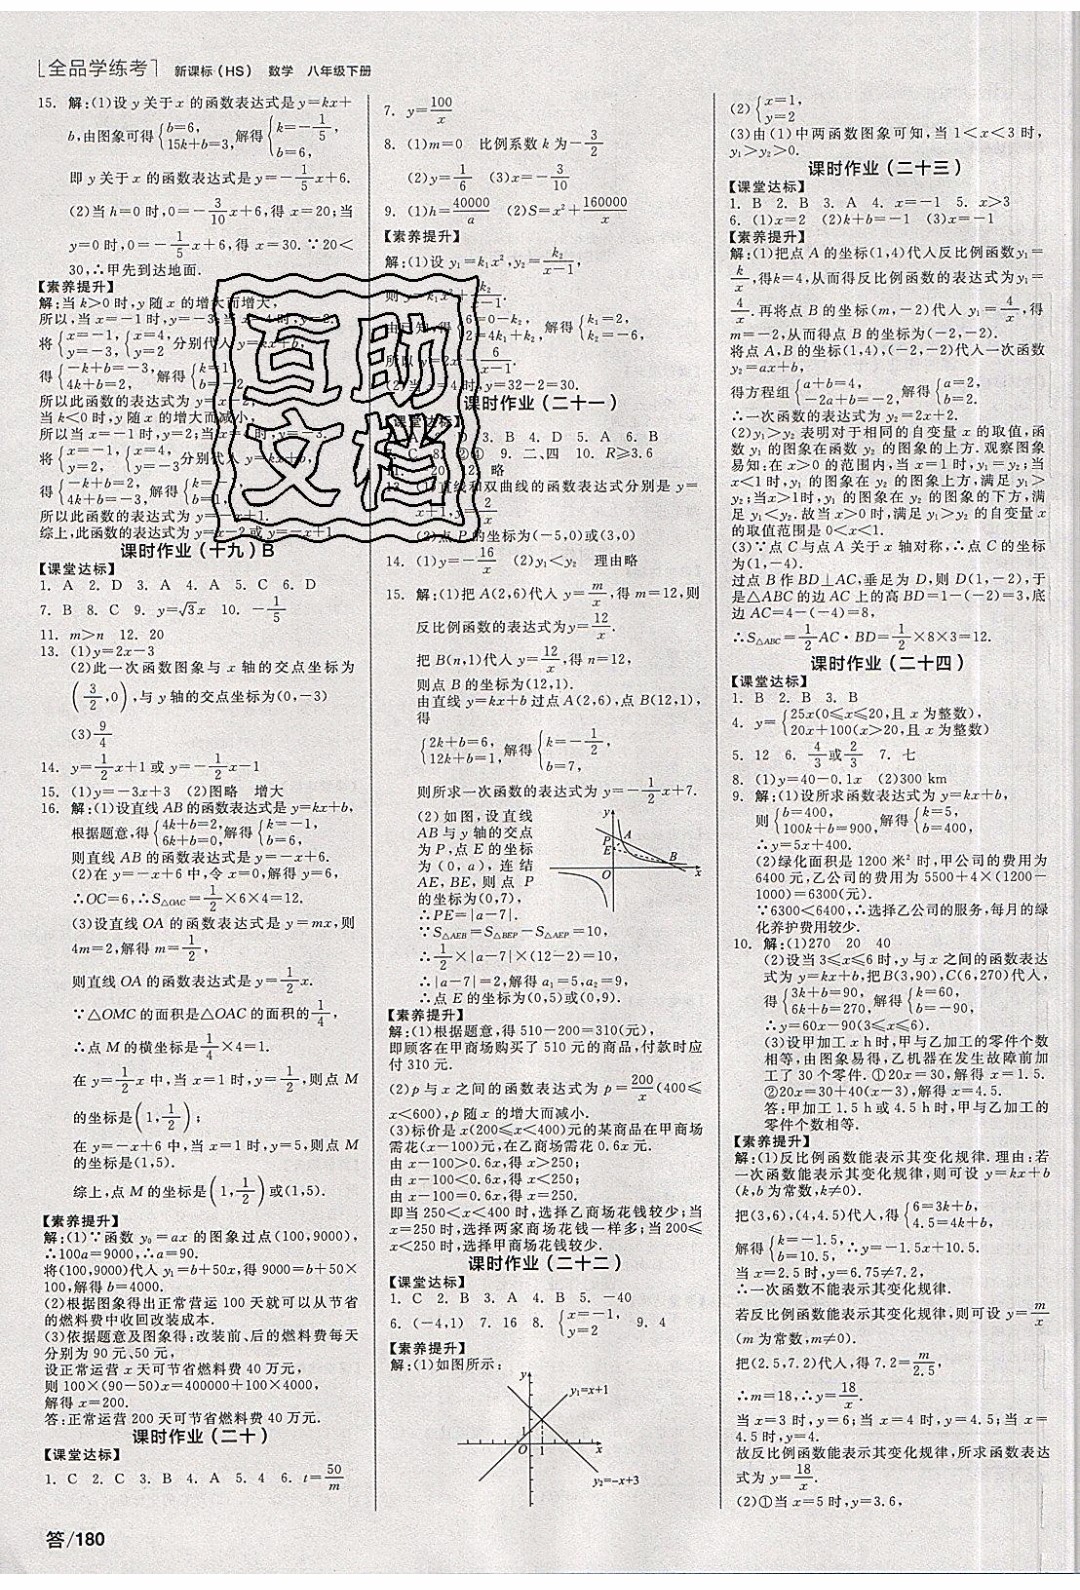 全品学练考 新课标(HS) 数学 八年级下册
15. 解:(1)设y关于x的函数表达式是y=kx+
b,由图象可得{b=6, 15k+b=3, 解得{k=-1/5, b=6,
即y关于x的函数表达式是y=-1/5x+6.
(2)当h=0时,0=-3/10x+6,得x=20;当
y=0时,0=-1/5x+6,得x=30.∵20<
30,∴甲先到达地面.
【素养提升】
解:当k>0时,y随x的增大而增大,
所以,当x=-1时,y=-3;当x=4时,y=2.
将{x=-1, y=-3, {x=4, y=2 分别代入y=kx+b,
得{-k+b=-3, 4k+b=2, 解得{k=1, b=-2,
所以此函数的表达式为y=x-2;
当k<0时,y随x的增大而减小,
所以当x=-1时,y=2;当x=4时,y=-3.
将{x=-1, y=2, {x=4, y=-3 分别代入y=kx+b,
得{-k+b=2, 4k+b=-3, 解得{k=-1, b=1,
所以此函数的表达式为y=-x+1.
综上,此函数的表达式为y=x-2或y=-x+1.
课时作业(十九)B
【课堂达标】
1. A 2. D 3. A 4. A 5. C 6. D
7. B 8. C 9. y=√3x 10. -1/5
11. m>n 12. 20
13. (1)y=2x-3
(2)此一次函数图象与x轴的交点坐标为
(3/2,0),与y轴的交点坐标为(0,-3)
(3)9/4
14. y=1/2x+1或y=-1/2x-1
15. (1)y=-3x+3 (2)图略 增大
16. 解:(1)设直线AB的函数表达式是y=kx+b,
根据题意,得{4k+b=2, 6k+b=0, 解得{k=-1, b=6,
则直线AB的函数表达式是y=-x+6.
(2)在y=-x+6中,令x=0,解得y=6,
∴OC=6,∴S△OAC=1/2×6×4=12.
(3)设直线OA的函数表达式是y=mx,则
4m=2,解得m=1/2,
则直线OA的函数表达式是y=1/2x.
∵△OMC的面积是△OAC的面积的1/4,
∴点M的横坐标是1/4×4=1.
在y=1/2x中,当x=1时,y=1/2,则点M
的坐标是(1,1/2);
在y=-x+6中,当x=1时,y=5,则点M
的坐标是(1,5).
综上,点M的坐标是(1,1/2)或(1,5).
【素养提升】
解:(1)∵函数y₀=ax的图象过点(100,9000),
∴100a=9000,∴a=90.
将(100,9000)代入y₁=b+50x,得9000=b+50×
100,解得b=4000.
(2)根据图象得出正常营运100天就可以从节省
的燃料费中收回改装成本.
(3)依据题意及图象得:改装前、后的燃料费每天
分别为90元、50元,
设正常营运x天可节省燃料费40万元,
则100×(90-50)x=400000+100×4000,
解得x=200.
答:正常运营200天可节省燃料费40万元.
课时作业(二十)
【课堂达标】
1. C 2. C 3. B 4. A 5. 4 6. t=50/m
7. y=100/x
8. (1)m=0 比例系数k为-3/2
(2)y=1/6 (3)x=-3/10
9. (1)h=40000/a (2)S=x²+160000/x
【素养提升】
解:(1)设y₁=k₁x²,y₂=k₂/(x-1),
则y=k₁x²+k₂/(x-1).
由已知,得{6=0-k₂, 2=4k₁+k₂, 解得{k₁=2, k₂=-6,
所以y=2x²-6/(x-1).
(2)当x=4时,y=32-2=30.
课时作业(二十一)
【课堂达标】
D 3. B 4. D 5. A 6. B
C 8. ②④ 9. 二、四 10. R≥3.6
略
直线和双曲线的函数表达式分别是y=
x+1,y=2/x
(2)点P的坐标为(-5,0)或(3,0)
14. (1)y=-16/x (2)y₁<y₂ 理由略
15. 解:(1)把A(2,6)代入y=m/x,得m=12,则
反比例函数的表达式为y=12/x.
把B(n,1)代入y=12/x,得n=12,
则点B的坐标为(12,1).
由直线y=kx+b过点A(2,6),点B(12,1),
得
{2k+b=6, 12k+b=1, 解得{k=-1/2, b=7,
则所求一次函数的表达式为y=-1/2x+7.
(2)如图,设直线
AB与y轴的交点
为P,点E的坐标
为(0,a),连结
AE,BE,则点P
的坐标为(0,7),
∴PE=|a-7|.
∵S△AEB=S△BEP-S△AEP=10,
∴1/2×|a-7|×(12-2)=10,
∴|a-7|=2,解得a₁=5,a₂=9,
∴点E的坐标为(0,5)或(0,9).
y P E A B O x
【素养提升】
解:(1)根据题意,得510-200=310(元),
即顾客在甲商场购买了510元的商品,付款时应
付310元.
(2)p与x之间的函数表达式为p=200/x(400≤
x<600),p随x的增大而减小.
(3)标价是x(200≤x<400)元的某商品在甲商场
需花(x-100)元,在乙商场需花0.6x元.
由x-100>0.6x,得x>250;
由x-100<0.6x,得x<250;
由x-100=0.6x,得x=250.
即当250<x<400时,选择乙商场花钱较少;当
x=250时,选择两家商场花钱一样多;当200≤
x<250时,选择甲商场花钱较少.
课时作业(二十二)
【课堂达标】
1. C 2. B 3. A 4. B 5. -40
6. (-4,1) 7. 16 8. {x=-1, y=2 9. 4
【素养提升】
解:(1)如图所示:
y y₁=x+1 1 O 1 x y₂=-x+3
(2){x=1, y=2
(3)由(1)中两函数图象可知,当1<x<3时,
y₁>y₂>0.
课时作业(二十三)
【课堂达标】
1. B 2. B 3. A 4. x=-1 5. x>3
6. (1)x=2 (2)k+b=-1 (3)x=-1
【素养提升】
解:(1)把点A的坐标(1,4)代入反比例函数y₁=
k/x,得k=4,从而得反比例函数的表达式为y₁=
4/x.再将点B的坐标(m,-2)代入y₁=4/x,得
m=-2,从而得点B的坐标为(-2,-2).
将点A,B的坐标(1,4),(-2,-2)代入一次函数
y₂=ax+b,
得方程组{a+b=4, -2a+b=-2, 解得{a=2, b=2.
∴一次函数的表达式为y₂=2x+2.
(2)y₁>y₂表明对于相同的自变量x的取值,函
数y₁的图象在函数y₂的图象的上方.观察图象
易知:在x>0的范围内,当x=1时,y₁=y₂;当
x<1时,y₁的图象在y₂的图象上方,满足y₁>
y₂;当x>1时,y₁的图象在y₂的图象的下方,满
足y₁<y₂.故当x>0时,满足y₁>y₂的自变量x
的取值范围是0<x<1.
(3)∵点C与点A关于x轴对称,∴点C的坐标
为(1,-4).
过点B作BD⊥AC,垂足为D,则D(1,-2),于
是△ABC的边AC上的高BD=1-(-2)=3,底
边AC=4-(-4)=8,
∴S△ABC=1/2AC·BD=1/2×8×3=12.
课时作业(二十四)
【课堂达标】
1. B 2. B 3. B
4. y={25x(0≤x≤20,且x为整数), 20x+100(x>20,且x为整数)
5. 12 6. 4/3或2/3 7. 七
8. (1)y=40-0.1x (2)300 km
9. 解:(1)设所求函数表达式为y=kx+b,
则{b=400, 100k+b=900, 解得{k=5, b=400,
∴y=5x+400.
(2)绿化面积是1200米²时,甲公司的费用为
6400元,乙公司的费用为5500+4×(1200-
1000)=6300(元).
∵6300<6400,∴选择乙公司的服务,每月的绿
化养护费用较少.
10. 解:(1)270 20 40
(2)设当3≤x≤6时,y与x之间的函数表达
式为y=kx+b,把B(3,90),C(6,270)代入,
得{3k+b=90, 6k+b=270, 解得{k=60, b=-90,
∴y=60x-90(3≤x≤6).
(3)设甲加工x h时,甲与乙加工的零件个数
相等,由图象易得,乙机器在发生故障前加
工了30个零件.①20x=30,解得x=1.5.
②20x=30+40(x-3),解得x=4.5.
答:甲加工1.5 h或4.5 h时,甲与乙加工的
零件个数相等.
【素养提升】
解:(1)反比例函数能表示其变化规律.理由:若
一次函数能表示其变化规律,则可设y=kx+b
(k,b为常数,k≠0).
把(3,6),(4,4.5)代入,得{6=3k+b, 4.5=4k+b,
解得{k=-1.5, b=10.5, ∴y=-1.5x+10.5.
当x=2.5时,y=6.75≠7.2,
∴一次函数不能表示其变化规律.
若反比例函数能表示其变化规律,则可设y=m/x
(m为常数,m≠0).
把(2.5,7.2)代入,得7.2=m/2.5,
∴m=18,∴y=18/x.
当x=3时,y=6;当x=4时,y=4.5;当x=
4.5时,y=4.
故反比例函数能表示其变化规律,所求函数表达
式为y=18/x.
(2)①当x=5时,y=3.6,
答/180
互助
文档